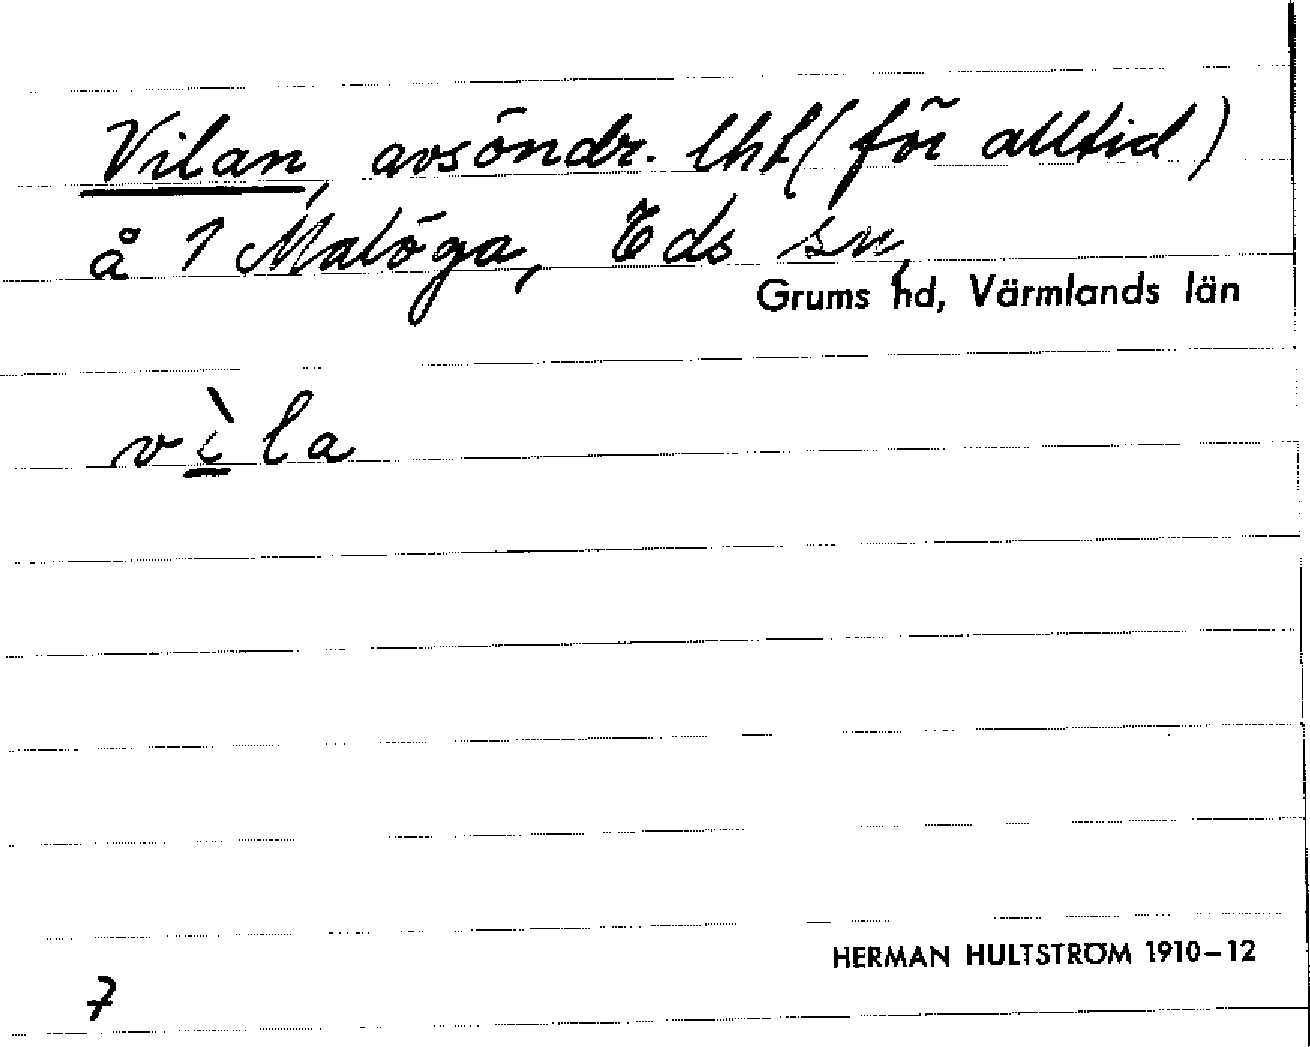 Vilan, avsöndr. lht (för alltid)
å 1 Malöga, Eds sn,
Grums hd, Värmlands län
vìla
HERMAN HULTSTRÖM 1910–12
7